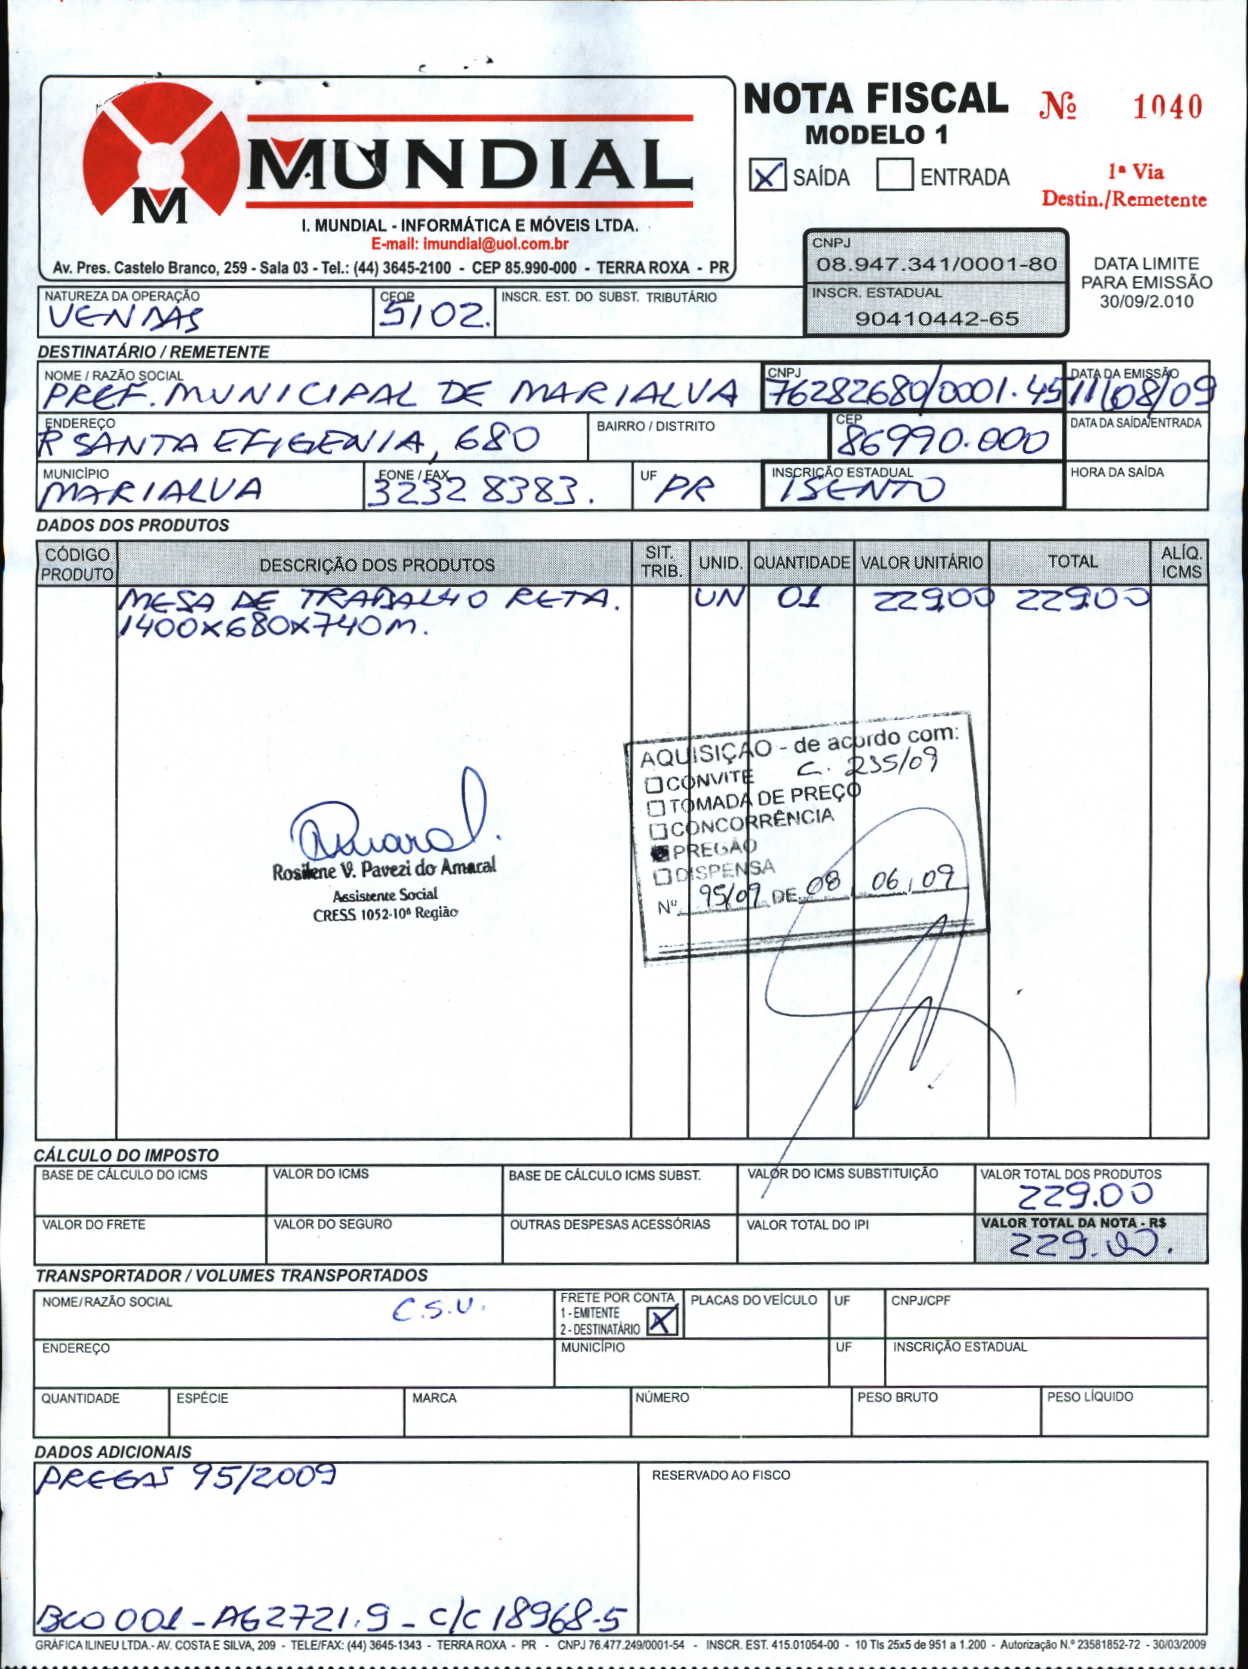 NOTA FISCAL
MODELO 1
Nº 1040
X SAÍDA ENTRADA
1ª Via
Destin./Remetente
M
MUNDIAL
I. MUNDIAL - INFORMÁTICA E MÓVEIS LTDA.
E-mail: imundial@uol.com.br
Av. Pres. Castelo Branco, 259 - Sala 03 - Tel.: (44) 3645-2100 - CEP 85.990-000 - TERRA ROXA - PR
CNPJ
08.947.341/0001-80
INSCR. ESTADUAL
90410442-65
DATA LIMITE
PARA EMISSÃO
30/09/2.010
NATUREZA DA OPERAÇÃO
VENDAS
CFOP
5102.
INSCR. EST. DO SUBST. TRIBUTÁRIO
DESTINATÁRIO / REMETENTE
NOME / RAZÃO SOCIAL
PREF. MUNICIPAL DE MARIALVA
CNPJ
76282680/0001.45
DATA DA EMISSÃO
11/08/09
ENDEREÇO
R SANTA EFIGENIA, 680
BAIRRO / DISTRITO
CEP
86990.000
DATA DA SAÍDA/ENTRADA
MUNICÍPIO
MARIALVA
FONE / FAX
32328383.
UF
PR
INSCRIÇÃO ESTADUAL
ISENTO
HORA DA SAÍDA
DADOS DOS PRODUTOS
CÓDIGO PRODUTO DESCRIÇÃO DOS PRODUTOS SIT. TRIB. UNID. QUANTIDADE VALOR UNITÁRIO TOTAL ALÍQ. ICMS
MESA DE TRABALHO RETA. UN 01 229,00 229,00
1400X680X740M.
AQUISIÇÃO - de acordo com:
CONVITE C. 235/09
TOMADA DE PREÇO
CONCORRÊNCIA
PREGÃO
DISPENSA
Nº 95/09 DE 08 06 09
Rosilene V. Pavezi do Amaral
Assistente Social
CRESS 1052-10ª Região
CÁLCULO DO IMPOSTO
BASE DE CÁLCULO DO ICMS
VALOR DO ICMS
BASE DE CÁLCULO ICMS SUBST.
VALOR DO ICMS SUBSTITUIÇÃO
VALOR TOTAL DOS PRODUTOS
229.00
VALOR DO FRETE
VALOR DO SEGURO
OUTRAS DESPESAS ACESSÓRIAS
VALOR TOTAL DO IPI
VALOR TOTAL DA NOTA - R$
229.00.
TRANSPORTADOR / VOLUMES TRANSPORTADOS
NOME/RAZÃO SOCIAL
C.S.U.
FRETE POR CONTA
1 - EMITENTE
2 - DESTINATÁRIO
X
PLACAS DO VEÍCULO
UF
CNPJ/CPF
ENDEREÇO
MUNICÍPIO
UF
INSCRIÇÃO ESTADUAL
QUANTIDADE
ESPÉCIE
MARCA
NÚMERO
PESO BRUTO
PESO LÍQUIDO
DADOS ADICIONAIS
95/2009
RESERVADO AO FISCO
BCO 001 - AG 2721.9 - C/C 18968-5
GRÁFICA ILINEU LTDA.- AV. COSTA E SILVA, 209 - TELE/FAX: (44) 3645-1343 - TERRA ROXA - PR - CNPJ 76.477.249/0001-54 - INSCR. EST. 415.01054-00 - 10 Tls 25x5 de 951 a 1.200 - Autorização N.º 23581852-72 - 30/03/2009